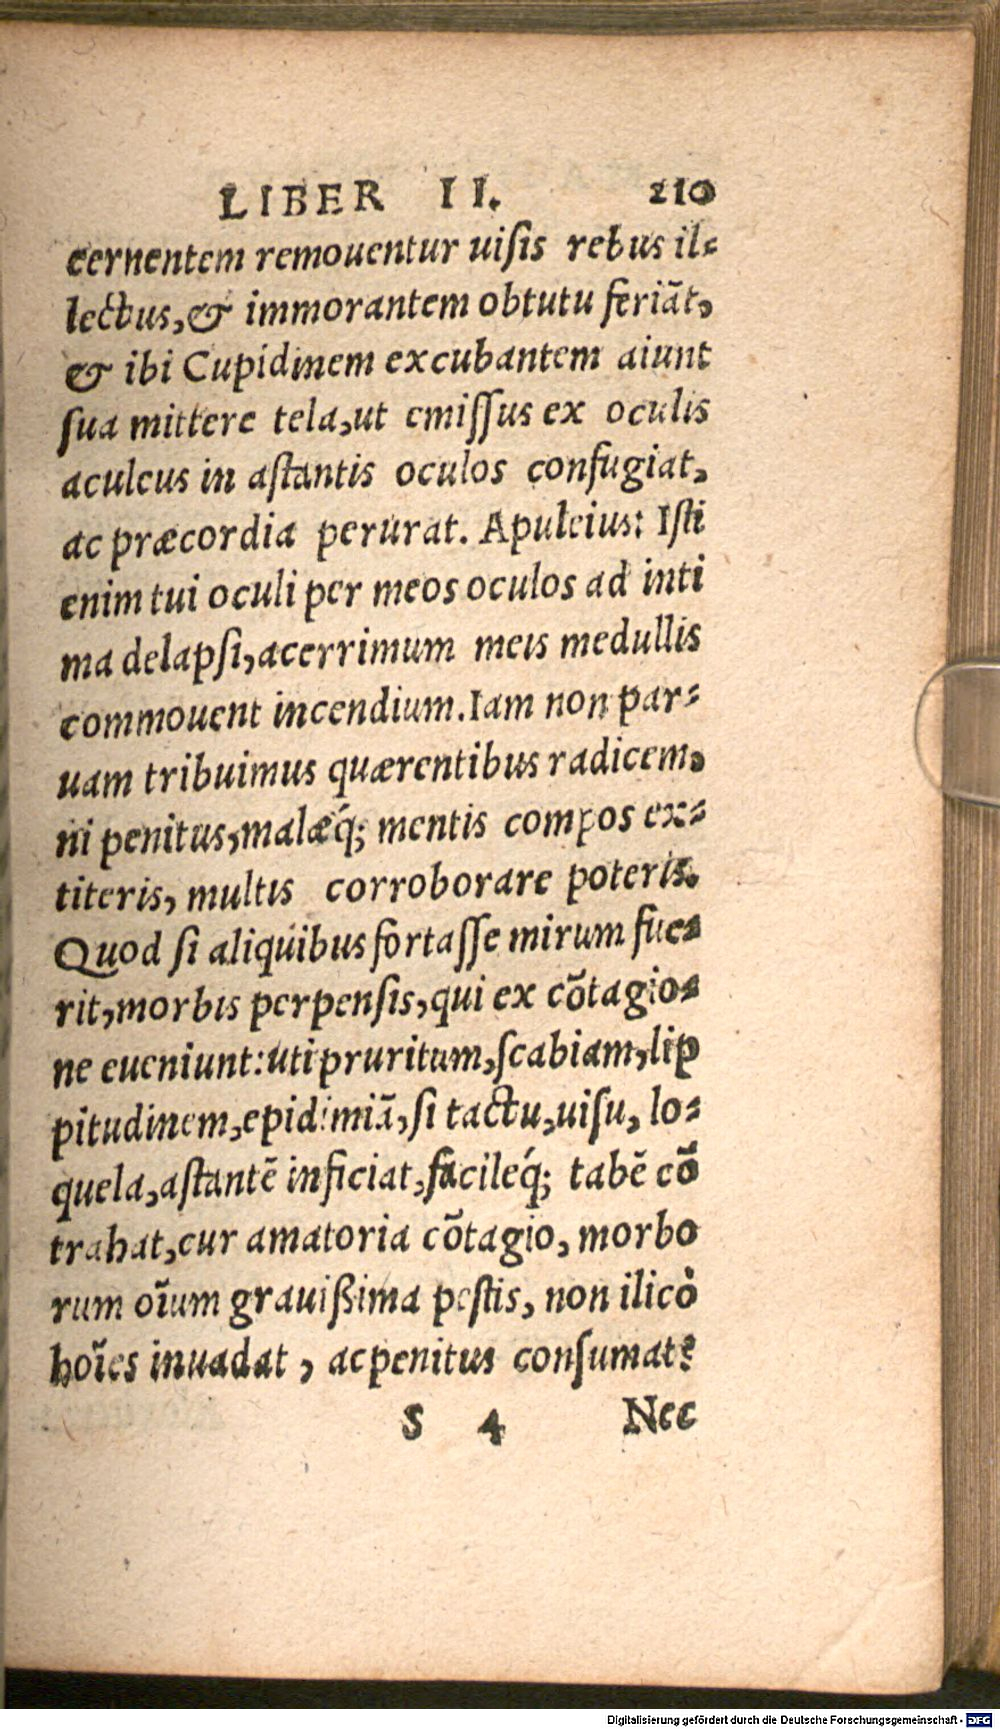 LIBER II. 210
cernentem remouentur uisis rebus il-
lectus, & immorantem obtutu feriāt,
& ibi Cupidinem excubantem aiunt
sua mittere tela, ut emissus ex oculis
aculeus in astantis oculos confugiat,
ac præcordia perurat. Apuleius: Isti
enim tui oculi per meos oculos ad inti
ma delapsi, acerrimum meis medullis
commouent incendium. Iam non par-
uam tribuimus quærentibus radicem,
ni penitus, malæq́; mentis compos ex-
titeris, multis corroborare poteris.
Quod si aliquibus fortasse mirum fue-
rit, morbis perpensis, qui ex cōtagio-
ne eueniunt: uti pruritum, scabiam, lip
pitudinem, epidimiā, si tactu, uisu, lo-
quela, astantē inficiat, facileq́; tabē cō
trahat, cur amatoria cōtagio, morbo
rum oīum grauißima pestis, non ilicò
hoīes inuadat, ac penitus consumat?
S 4 Nec
Digitalisierung gefördert durch die Deutsche Forschungsgemeinschaft - DFG